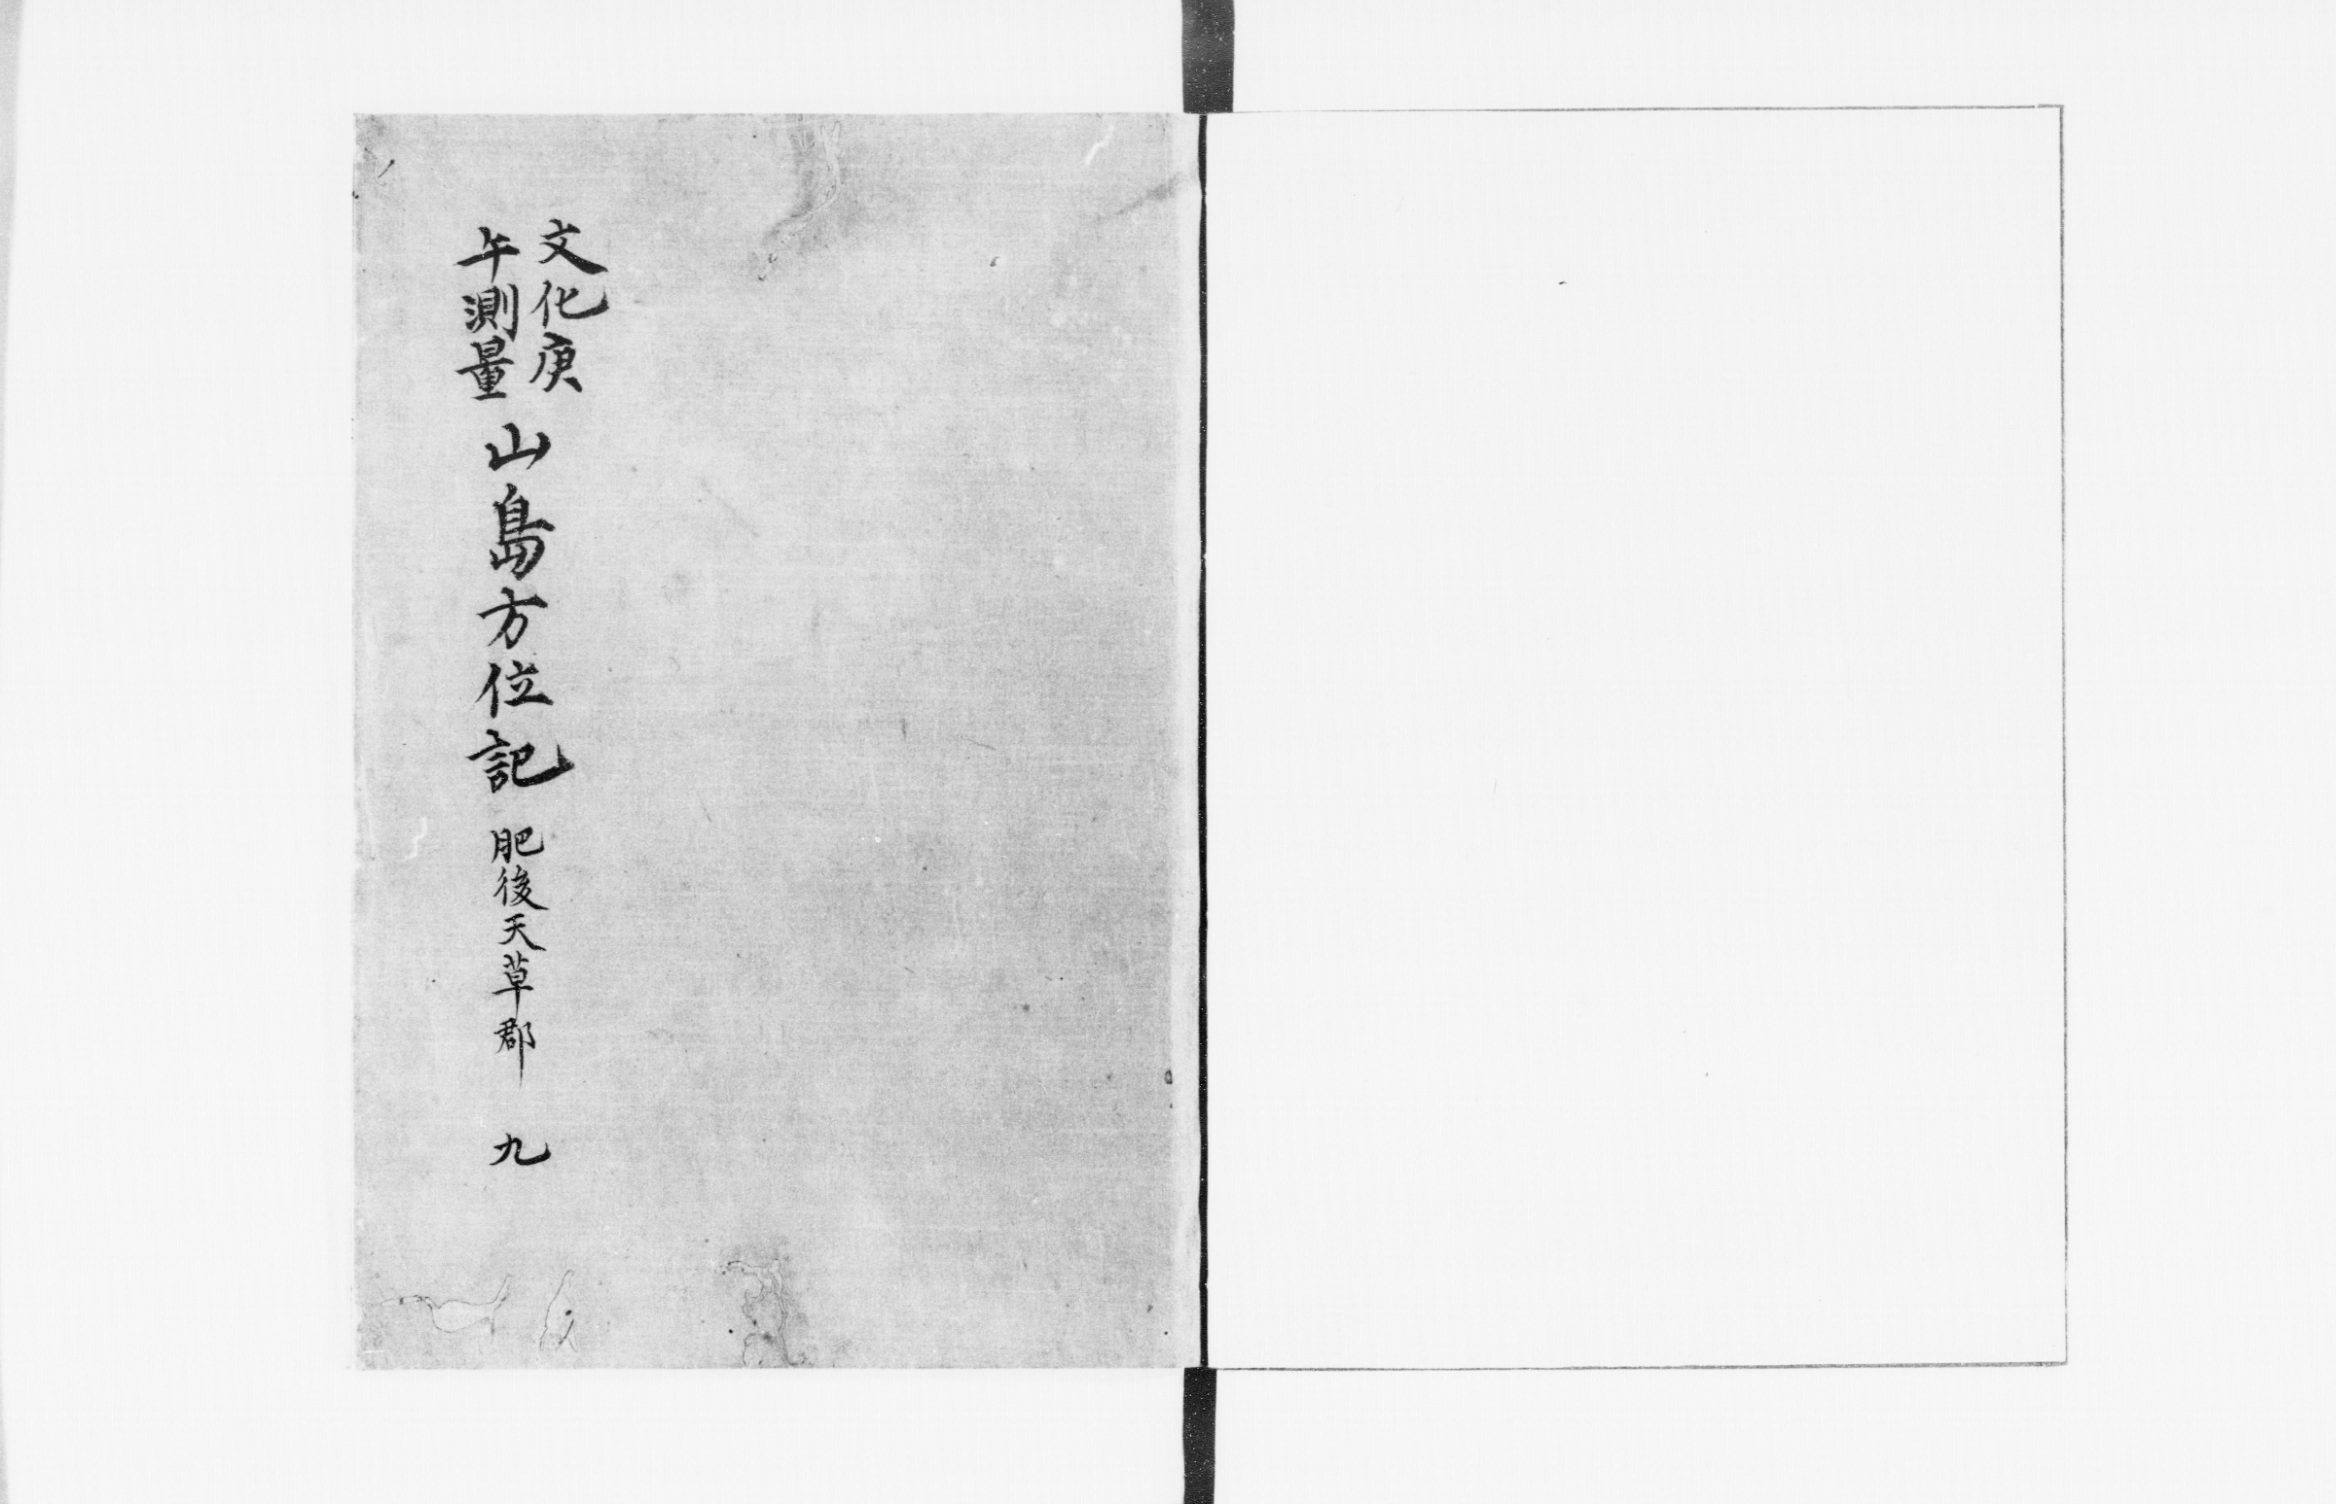 文化庚
午測量
山島方位記 肥後天草郡 九